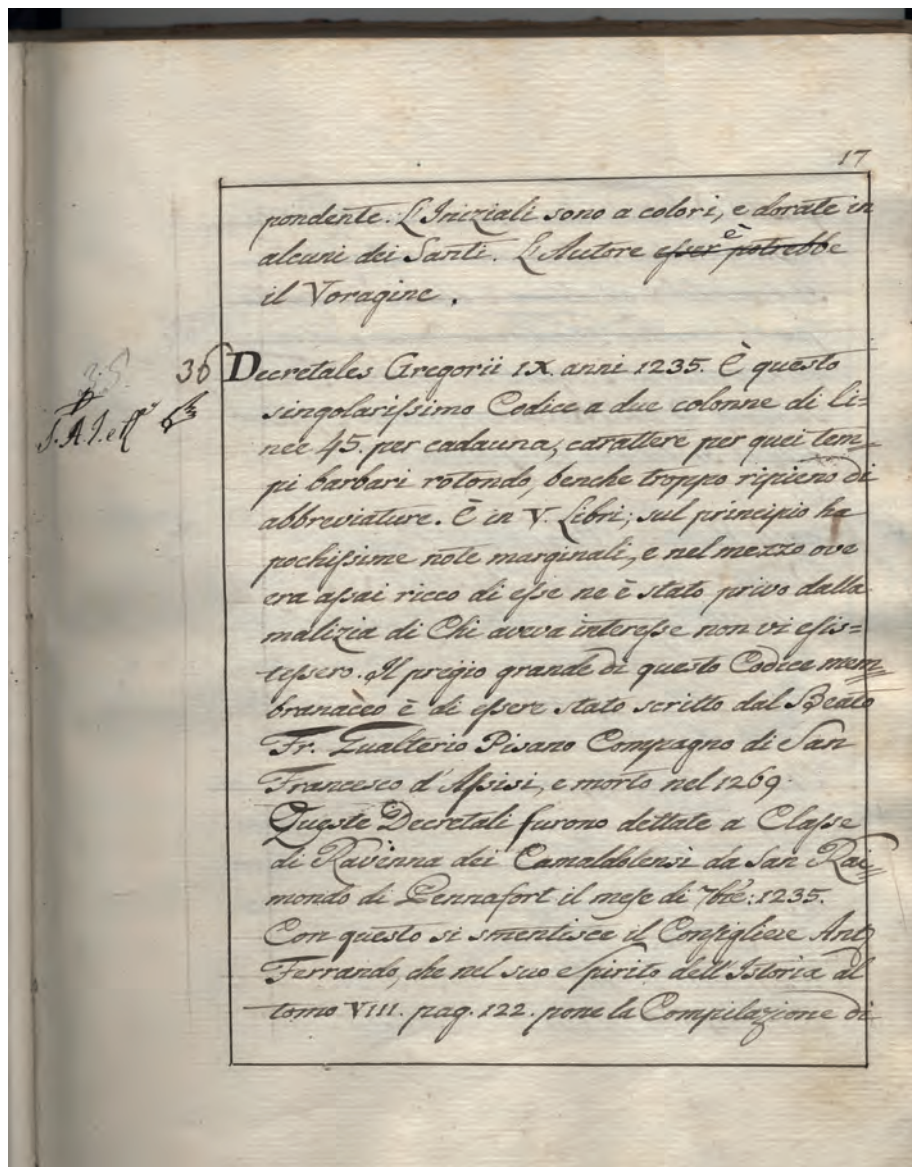 17
pondente. L'Iniziali sono a colori, e dorate in
alcuni dei Santi. L'Autore esser potrebbe è
il Voragine.
36 Decretales Gregorii IX. anni 1235. È questo
singolarissimo Codice a due colonne di li=
nee 45. per cadauna, carattere per quei tem=
pi barbari rotondo, benche troppo ripieno di
abbreviature. È in V. Libri; sul principio ha
pochissime note marginali, e nel mezzo ove
era assai ricco di esse ne è stato privo dalla
malizia di Chi aveva interesse non vi esis=
tessero. Il pregio grande di questo Codice mem=
branaceo è di essere stato scritto dal Beato
Fr. Gualterio Pisano Compagno di San
Francesco d'Assisi, e morto nel 1269.
Queste Decretali furono dettate a Classe
di Ravenna dei Camaldolensi da San Rai=
mondo di Pennafort il mese di 7bre: 1235.
Con questo si smentisce il Consigliere Ant
Ferrando, che nel suo spirito dell'Istoria al
tomo VIII. pag. 122. pone la Compilazione di